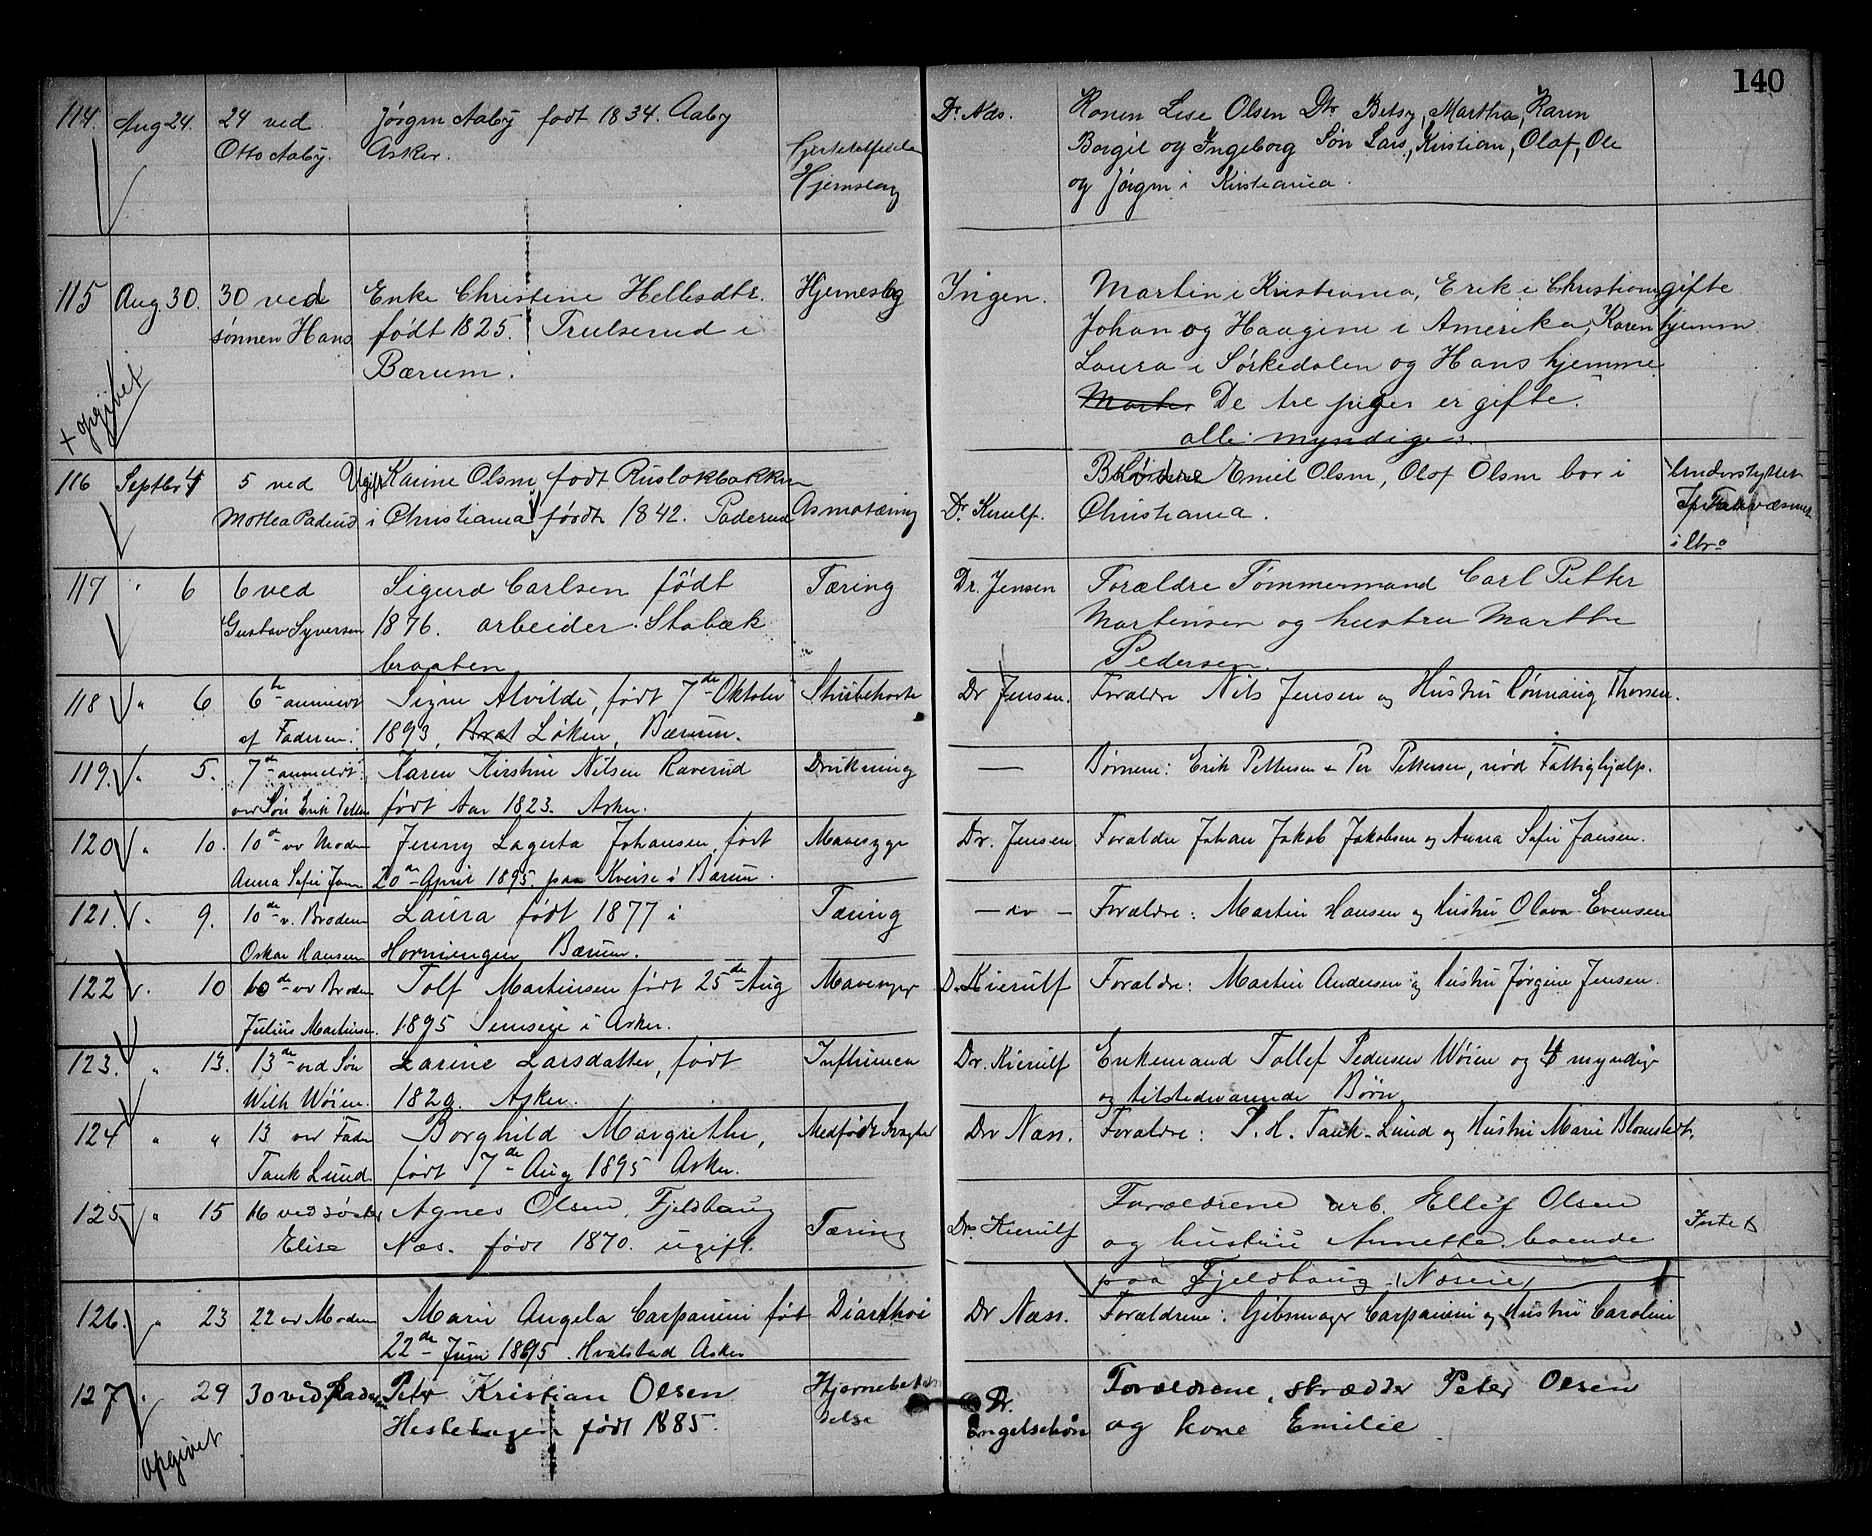 140
114. Aug 24. 24 ved Jørgen Aaby født 1834. Aaby Dr. Næs. Konen Lise Olsen Dtr Betsy, Martha, Karen
Otto Aaby. Asker. Hjemslag Borgil og Ingeborg Søn Lars, Kristian, Olaf, Ole
og Jørgen i Kristiania.
115 Aug. 30. 30 ved Enke Christine Hellesdtr. Hjerneslag Ingen. Martin i Kristiania, Erik i Christiania gifte
sønnen Hans født 1825. Trulserud i Johan og Haagine i Amerika, Karen hjemm
Bærum. Laura i Sørkedalen og Hans hjemme
+ opgivet Marter De tre piger er gifte.
alle myndige.
116 Septbr 4 5 ved Ugift Karine Olsen født Ruslokbakken Brødre Emil Olsen, Olof Olsen bor i Understyttet
Mathea Paderud i Christiania født 1842. Paderud Dr. Kiærulf. Christiania.
117 " 6 6 ved Sigurd Carlsen født Tæring Dr. Jensen Forældre Tømmermand Carl Petter
Gustav Syversen 1876. arbeider. Stabæk Martinsen og hustru Marthe
braaten Pedersen.
118 " 6 6te anmeldt Signe Alvilde, født 7de Oktober Strubehoste Dr Jensen. Forældre Nils Jensen og Hustru Rønnaug Thorsen.
af Faderen. 1893, Løken, Bærum.
119. " 5. 7de anmeldt Karen Kirstine Nilsen Raverud Drukning — Børnene: Erik Pettersen & Per Pettersen, nød Fattighjælp.
ved Søn Erik Petters født Aar 1823. Asker.
120 " 10. 10de ved Moder Jenny Lagerta Johansen, født Mavesyge Dr. Jensen Forældre Johan Jakob Jakobsen og Anna Sofie Jansen.
Anna Sofie Jans 20de April 1895 paa Kveise i Bærum.
121. " 9. 10de v. Broderen Laura født 1877 i Tæring — do — Forældre: Martin Hansen og Hustru Olava Evensen
Oskar Hansen Horningen Bærum.
122 " 10 10de ved Broder Tolf Martinsen født 25de Aug Mavesyge Dr. Kierulf Forældre: Martin Andersen og Hustru Jørgine Jensen.
Julius Martinsen. 1895 Semseie i Asker.
123. " 13. 13de ved Søn Larine Larsdatter, født Influenca Dr. Kierulf Enkemand Tollef Pedersen Wøien og 4 myndige
Wilh Wøien. 1829. Asker. og tilstedeværende Børn
124 " " 13 ved Fader Borghild Margrethe, Medfødt Svaghed Dr Næss. Forældre: P. H. Tank-Lund og Hustru Marie Blomstedt.
Tank Lund. født 7de Aug 1895 Asker.
125 " 15 16 ved søster Agnes Olsen, Fjeldhaug Tæring Dr. Kierulf Forældrene arb. Ellef Olsen
Elise Næs. født 1870. ugift. og hustru Annette boende
paa Fjeldhaug (Næseie)
126. " 23 22 ved Moderen Marie Angela Carpanini født Diarrhoi Dr Næss. Forældrene: Gibsmager Carpanini og Hustru Caroline
22de Juni 1895. Hvalstad Asker
127 " 29 30 ved Faderen Peter Kristian Olsen Hjernebetæn Dr. Forældrene, skrædder Peter Olsen
Hestehagen født 1885. delse Engelschøn og kone Emilie
opgivet